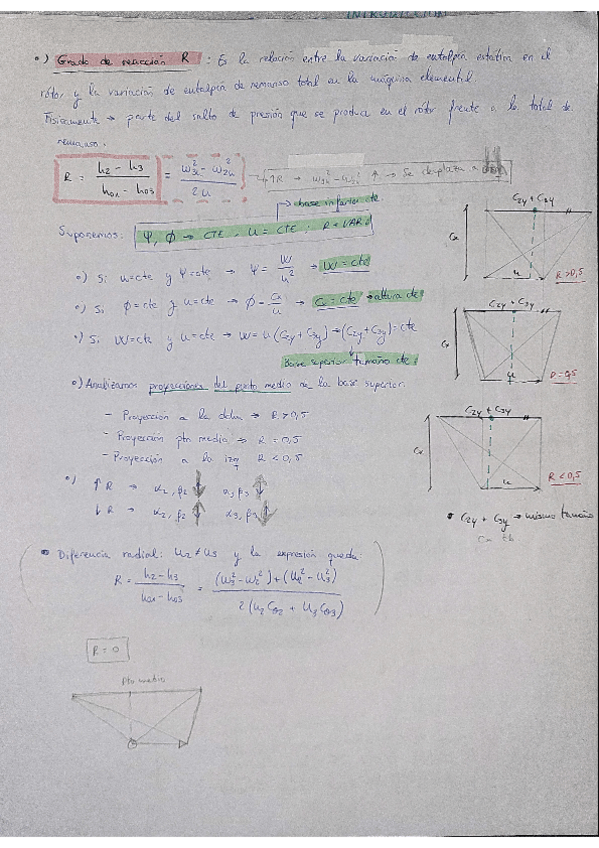 INTRODUCCIÓN
•) Grado de reacción R : Es la relación entre la variación de entalpía estática en el
rótor y la variación de entalpía de remanso total en la máquina elemental.
Físicamente → parte del salto de presión que se produce en el rótor frente a la total de
remanso.
R = (h2 - h3) / (h01 - h03) = / 2u → ↑R → ↑ → Se desplaza a
→ base inferior cte
Suponemos: Ψ, φ → CTE , u = CTE ; R = VAR.
•) Si u=cte y Ψ=cte → Ψ = W/u² → W = cte
•) Si φ=cte y u=cte → φ = Cx/u → Cx = cte → altura cte
•) Si W=cte y u=cte → W = u(C2y + C3y) → (C2y + C3y) = cte
Base superior tamaño cte
•) Analizamos proyecciones del punto medio en la base superior.
- Proyección a la dcha → R > 0,5
- Proyección pto medio → R = 0,5
- Proyección a la izq → R < 0,5
•) ↑ R → α2, β2 ↓ α3, β3 ↑
↓ R → α2, β2 ↑ α3, β3 ↓
C2y + C3y
Cx
u
R > 0,5
C2y + C3y
Cx
u
R = 0,5
C2y + C3y
Cx
u
R < 0,5
• C2y + C3y → mismo tamaño
• Diferencia radial: U2 ≠ U3 y la expresión queda:
R = (h2 - h3) / (h01 - h03) = ((W3² - W2²) + (U2² - U3²)) / (2 (U2 Cθ2 + U3 Cθ3))
R = 0
Pto medio